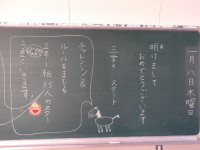 一月八日木曜日
明けまして
おめでとうございます
三学き スタート
チャレンジ &
ルールをまもる
2年1組 35人のスター